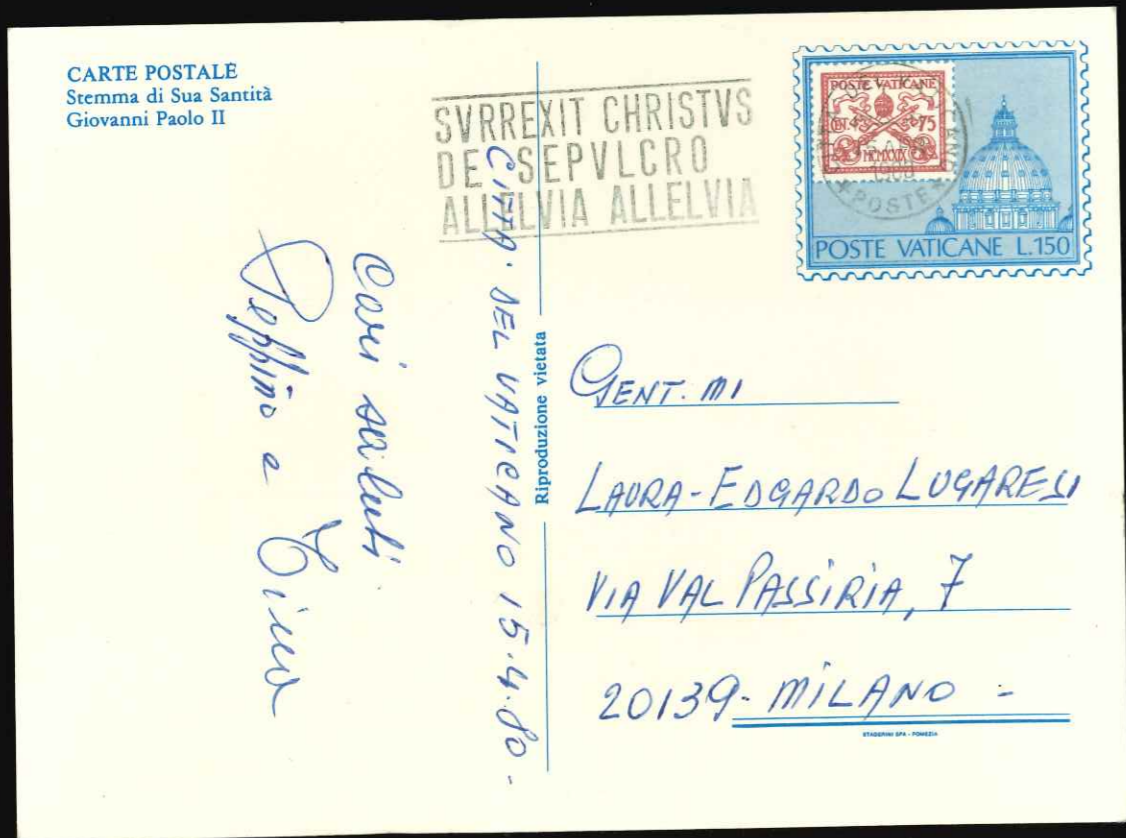 CARTE POSTALE
Stemma di Sua Santità
Giovanni Paolo II
SVRREXIT CHRISTVS
DE SEPVLCRO
ALLELVIA ALLELVIA
POSTE VATICANE
CENT. 75
MCMXXIX
POSTE
POSTE VATICANE L.150
CITTA' DEL VATICANO 15.4.80-
Cari saluti.
Peppino e Tina
Riproduzione vietata
GENT.MI
LAURA-EDGARDO LUGARESI
VIA VAL PASSIRIA, 7
20139-MILANO-
STADERINI SPA - POMEZIA